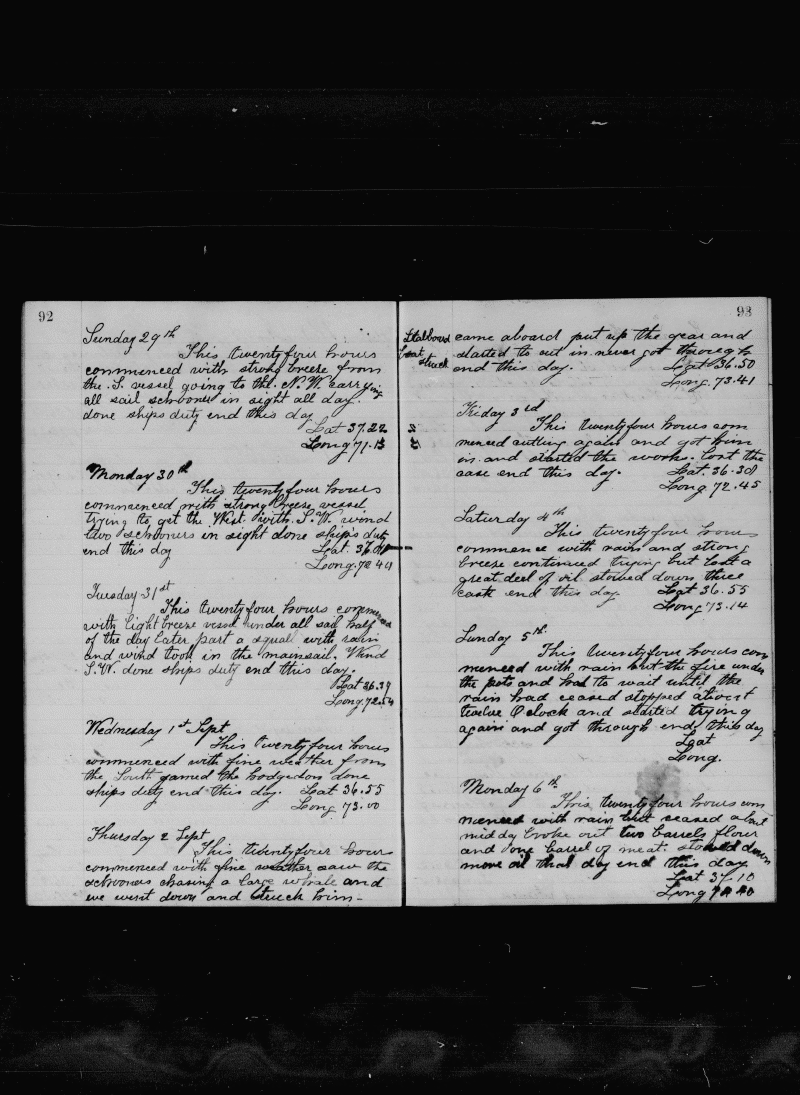 92
Sunday 29th
This twenty four hours
commenced with strong breeze from
the S. vessel going to the N.W. carrying
all sail schooner in sight all day.
done ships duty end this day
Lat 37.22
Long 71.13
Monday 30th
This twenty four hours
commenced with strong breeze vessel
trying to get the West. with S.W. wind
two schooners in sight done ship's duty
end this day Lat.
Long. 72 40
Tuesday 31st
This twenty four hours commenced
with light breeze vessel under all sail half
of the day later part a squall with rain
and wind took in the mainsail. Wind
S.W. done ships duty end this day.
Lat 36.39
Long. 72.54
Wednesday 1st Sept
This twenty four hours
commenced with fine weather from
the South gamed the done
ships duty end this day. Lat 36.55
Long 73.00
Thursday 2 Sept
This twenty four hours
commenced with fine weather saw the
schooners chasing a large whale and
we went down and struck him-
93
Stalboard
boat
struck
came aboard put up the gear and
started to cut in never got through
end this day. Lat 36.50
Long. 73.41
Friday 3rd
This twenty four hours com
menced cutting again and got him
in. and started the works. lost the
case end this day. Lat. 36.30
Long 72.45
Saturday 4th
This twenty four hours
commence with rain and strong
breeze continued trying but lost a
great deel of oil stowed down three
cask end this day. Lat 36.55
Long 73.14
Sunday 5th.
This twenty four hours com
menced with rain but the fire under
the pots and had to wait until the
rain had ceased stopped about
twelve O clock and started trying
again and got through end this day
Lat
Long.
Monday 6th.
This twenty four hours com
menced with rain but ceased about
midday broke out two barrels flour
and one barrel of meat. stowed down
more oil that day end this day
Lat 37.10
Long 40